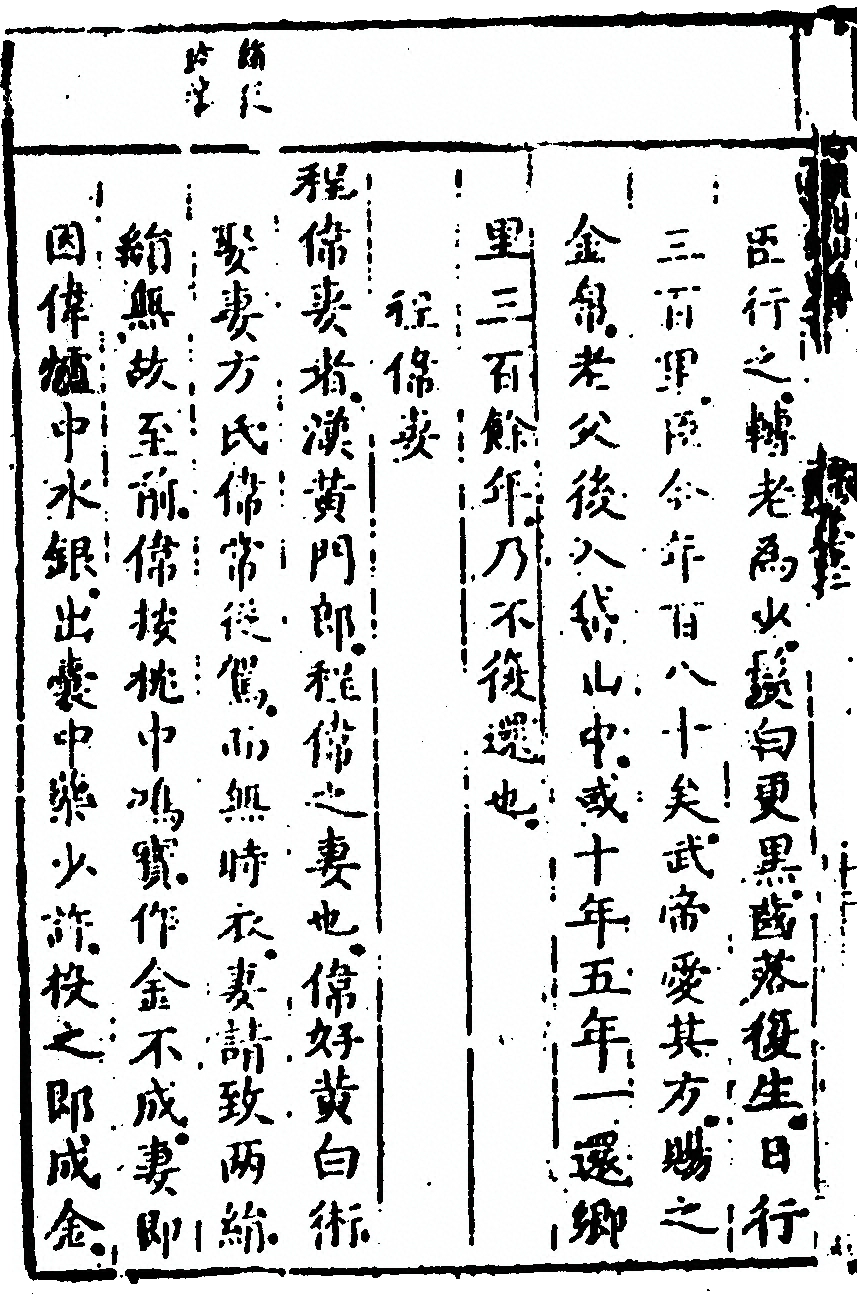 臣行之轉老為少髮白更黑齒落復生日行
三百里臣今年百八十矣武帝愛其方賜之
金帛老父後入岱山中或十年五年一還鄉
里三百餘年乃不復還也
程偉妻
程偉妻者漢黃門郎程偉之妻也偉好黃白術
娶妻方氏偉常從駕而無時衣妻請致兩縑
縑無故至前偉按枕中鴻寶作金不成妻即
因偉爐中水銀出囊中藥少許投之即成金